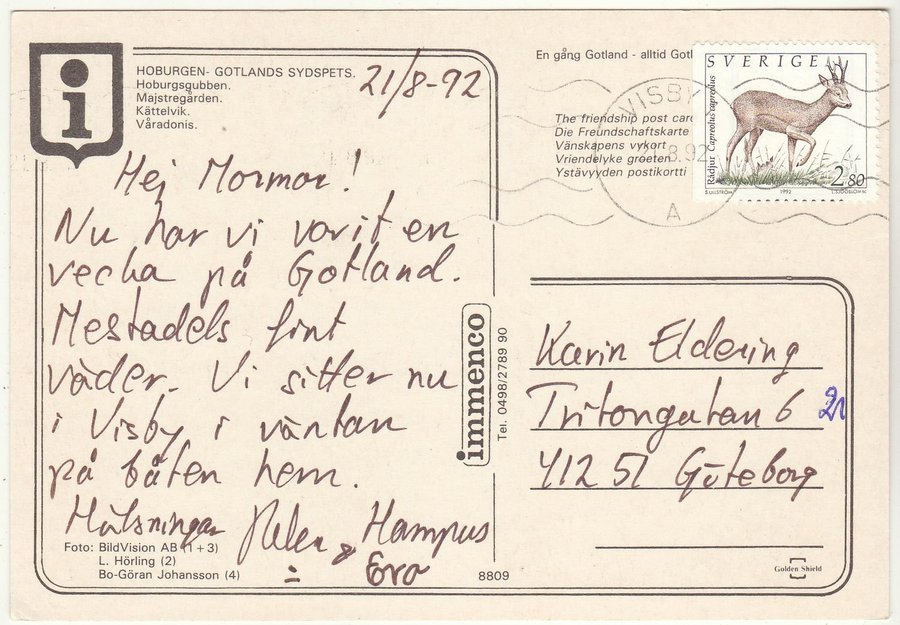 HOBURGEN- GOTLANDS SYDSPETS.
Hoburgsgubben.
Majstregården.
Kättelvik.
Våradonis.
21/8-92
Hej Mormor!
Nu har vi varit en
vecka på Gotland.
Mestadels fint
väder. Vi sitter nu
i Visby i väntan
på båten hem.
Hälsningar
& Hampus
Eva
Foto: BildVision AB (1 + 3)
L. Hörling (2)
Bo-Göran Johansson (4)
8809
immenco
Tel. 0498/2789 90
En gång Gotland - alltid Gotl
The friendship post card
Die Freundschaftskarte
Vänskapens vykort
Vriendelyke groeten
Ystävyyden postikortti
VISBY
8.92
A
SVERIGE
Rådjur Capreolus capreolus
2.80
S.ULLSTRÖM 1992 L.SJÖÖBLOM SC
Karin Eldering
Tritongatan 6 21
412 51 Göteborg
Golden Shield